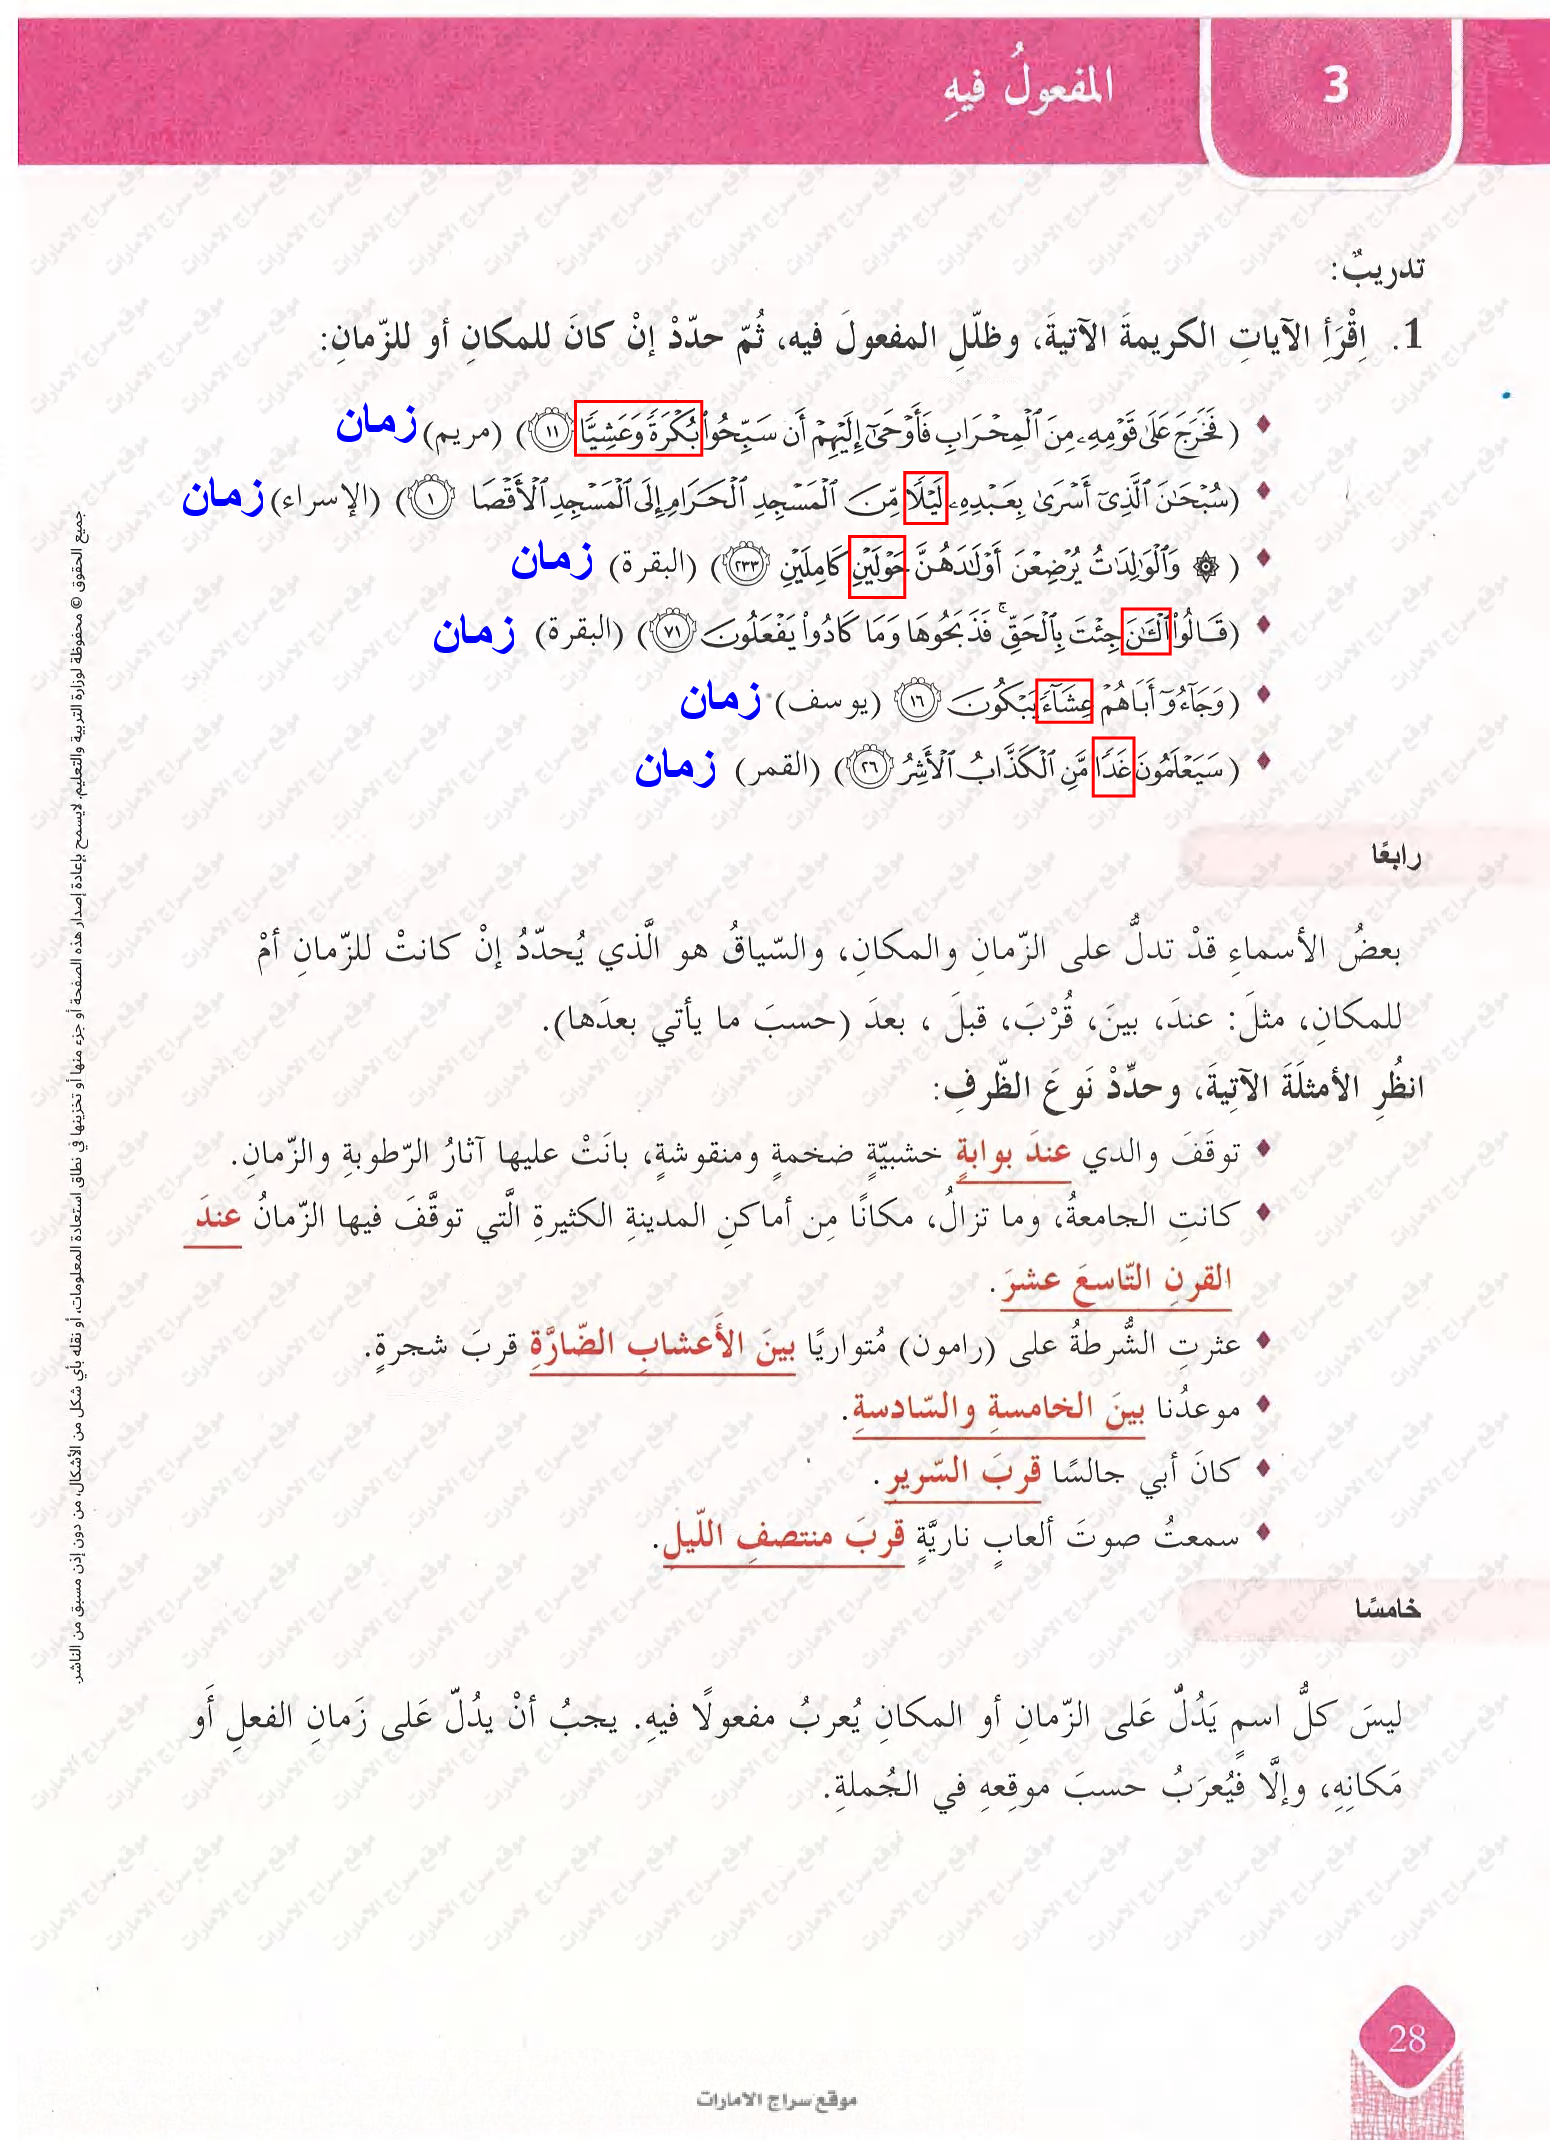 3
المفعولُ فيهِ
تدريبٌ:
1. اِقْرَأِ الآياتِ الكريمةَ الآتيةَ، وظلّلِ المفعولَ فيه، ثُمّ حدّدْ إنْ كانَ للمكانِ أو للزّمانِ:
(فَخَرَجَ عَلَىٰ قَوْمِهِۦ مِنَ ٱلْمِحْرَابِ فَأَوْحَىٰٓ إِلَيْهِمْ أَن سَبِّحُوا۟ بُكْرَةً وَعَشِيًّا ١١) (مريم) زمان
(سُبْحَـٰنَ ٱلَّذِىٓ أَسْرَىٰ بِعَبْدِهِۦ لَيْلًا مِّنَ ٱلْمَسْجِدِ ٱلْحَرَامِ إِلَى ٱلْمَسْجِدِ ٱلْأَقْصَا ١) (الإسراء) زمان
(۞ وَٱلْوَٰلِدَٰتُ يُرْضِعْنَ أَوْلَـٰدَهُنَّ حَوْلَيْنِ كَامِلَيْنِ ٢٣٣) (البقرة) زمان
(قَالُوا۟ ٱلْـَٔـٰنَ جِئْتَ بِٱلْحَقِّ ۚ فَذَبَحُوهَا وَمَا كَادُوا۟ يَفْعَلُونَ ٧١) (البقرة) زمان
(وَجَآءُوٓ أَبَاهُمْ عِشَآءً يَبْكُونَ ١٦) (يوسف) زمان
(سَيَعْلَمُونَ غَدًا مَّنِ ٱلْكَذَّابُ ٱلْأَشِرُ ٢٦) (القمر) زمان
رابعًا
بعضُ الأسماءِ قدْ تدلُّ على الزّمانِ والمكانِ، والسّياقُ هو الَّذي يُحدّدُ إنْ كانتْ للزّمانِ أمْ
للمكانِ، مثلَ: عندَ، بينَ، قُرْبَ، قبلَ ، بعدَ (حسبَ ما يأتي بعدَها).
انظُرِ الأمثلَةَ الآتِيةَ، وحدِّدْ نَوعَ الظّرفِ:
توقَفَ والدي عندَ بوابةٍ خشبيّةٍ ضخمةٍ ومنقوشةٍ، بانَتْ عليها آثارُ الرّطوبةِ والزّمانِ.
كانتِ الجامعةُ، وما تزالُ، مكانًا مِن أماكنِ المدينةِ الكثيرةِ الَّتي توقَّفَ فيها الزّمانُ عندَ
القرنِ التّاسعَ عشرَ.
عثرتِ الشُّرطةُ على (رامون) مُتواريًا بينَ الأَعشابِ الضّارَّةِ قربَ شجرةٍ.
موعدُنا بينَ الخامسةِ والسّادسةِ.
كانَ أبي جالسًا قربَ السّريرِ.
سمعتُ صوتَ ألعابٍ ناريَّةٍ قربَ منتصفِ اللّيلِ.
خامسًا
ليسَ كلُّ اسمٍ يَدُلُّ عَلى الزّمانِ أو المكانِ يُعربُ مفعولًا فيهِ. يجبُ أنْ يدُلّ عَلى زَمانِ الفعلِ أَو
مَكانِهِ، وإلَّا فَيُعرَبُ حسبَ موقِعهِ في الجُملةِ.
جميع الحقوق © محفوظة لوزارة التربية والتعليم. لايسمح بإعادة إصدار هذه الصفحة أو جزء منها أو تخزينها في نطاق استعادة المعلومات، أو نقله بأي شكل من الأشكال، من دون إذن مسبق من الناشر.
28
موقع سراج الامارات